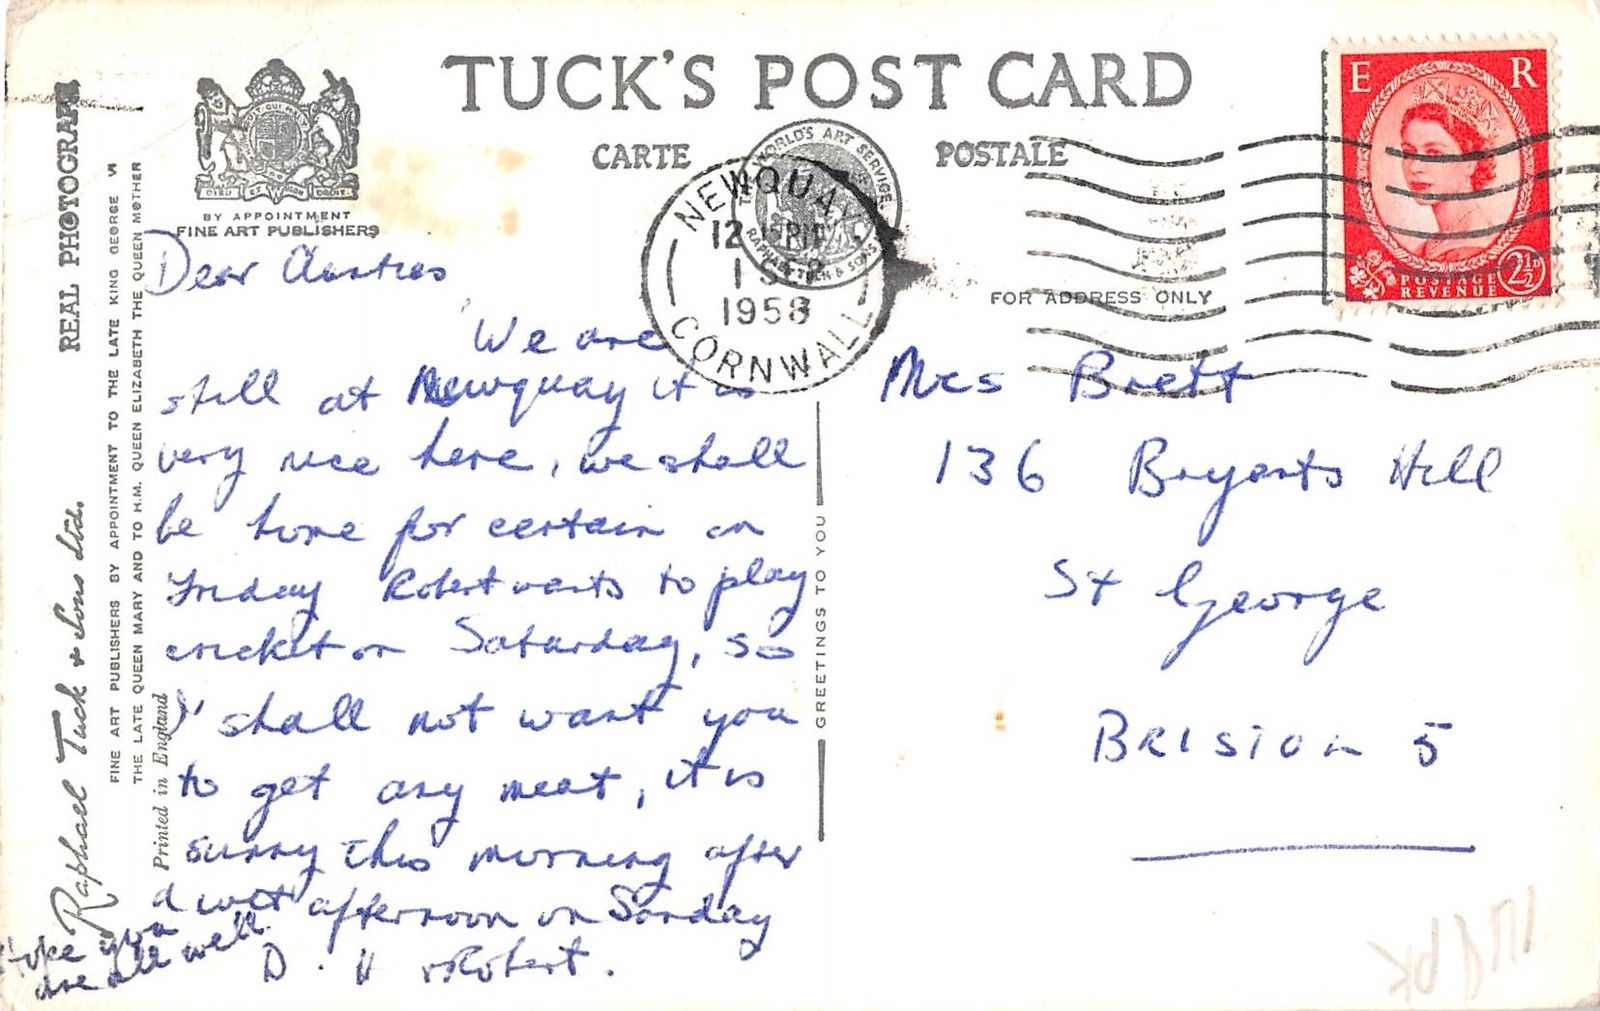 TUCK'S POST CARD
CARTE POSTALE
BY APPOINTMENT
FINE ART PUBLISHERS
REAL PHOTOGRAPH
FINE ART PUBLISHERS BY APPOINTMENT TO THE LATE KING GEORGE VI
THE LATE QUEEN MARY AND TO H.M. QUEEN ELIZABETH THE QUEEN MOTHER
Raphael Tuck & Sons Ltd.
Printed in England
THE WORLD'S ART SERVICE
RAPHAEL TUCK & SONS
NEWQUAY
12
1958
CORNWALL
E R
POSTAGE 2½D
REVENUE
FOR ADDRESS ONLY
GREETINGS TO YOU
Dear
We are
still at Newquay it is
very nice here, we shall
be home for certain on
Friday Robert wants to play
cricket on Saturday, so
I shall not want you
to get any meat, it is
sunny this morning after
a wet afternoon on Sunday
Robert.
you
are all well.
Mrs Brett
136 Bryants Hill
St George
BRISTOL 5